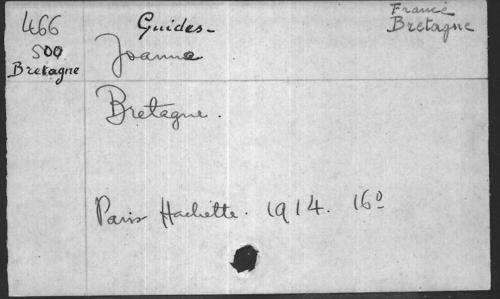 466
500
Bretagne
Guides-
Joanne
France
Bretagne
Bretagne.
Paris Hachette. 1914. 16º